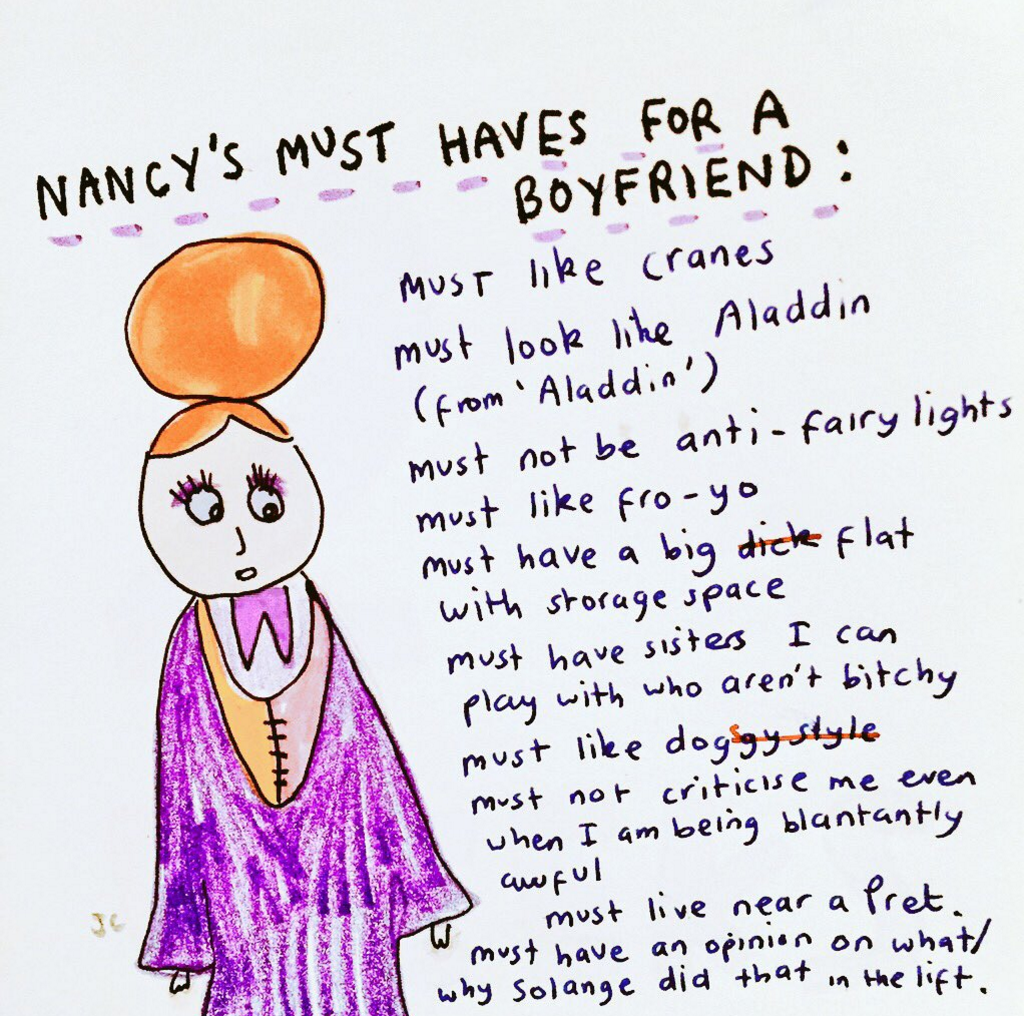 NANCY'S MUST HAVES FOR A
BOYFRIEND:
MUST like cranes
must look like Aladdin
(from 'Aladdin')
must not be anti-fairy lights
must like fro-yo
must have a big dick flat
with storage space
must have sisters I can
play with who aren't bitchy
must like dogsgy style
must not criticise me even
when I am being blantantly
awful
must live near a Pret.
must have an opinion on what/
why Solange did that in the lift.
JC